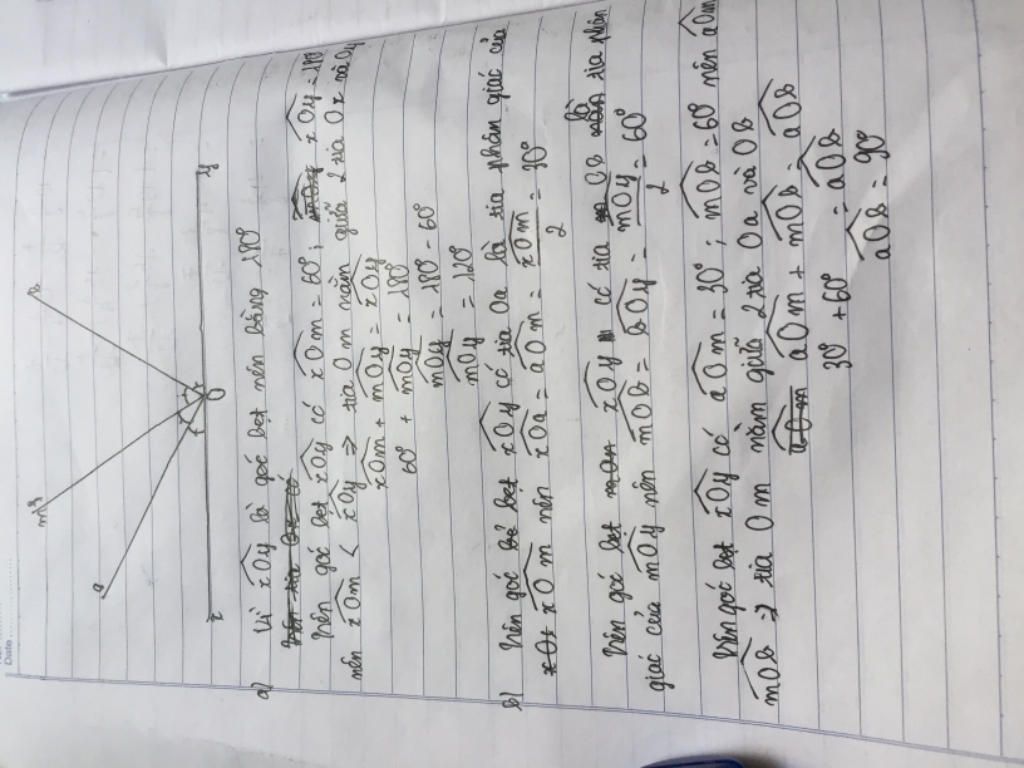 Date
m
b
a
x
O
y
a) Vì xOy là góc bẹt nên bằng 180°
Trên góc bẹt xOy có xOm = 60° ; xOy = 180°
nên xOm < xOy => tia Om nằm giữa 2 tia Ox và Oy
xOm + mOy = xOy
60° + mOy = 180°
mOy = 180° - 60°
mOy = 120°
b) Trên góc bẹt xOy có tia Oa là tia phân giác của
xOm nên xOa = aOm = xOm/2 = 30°
Trên góc bẹt xOy có tia Ob là tia phân
giác của mOy nên mOb = bOy = mOy/2 = 60°
Trên góc bẹt xOy có aOm = 30° ; mOb = 60° nên aOm
mOb => tia Om nằm giữa 2 tia Oa và Ob
aOm + mOb = aOb
30° + 60° = aOb
aOb = 90°